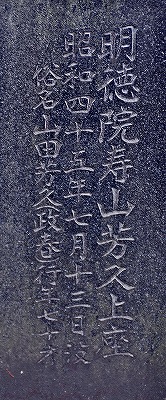 明徳院寿山芳久上座
昭和四十五年七月十三日没
俗名山田芳久政春行年七十才